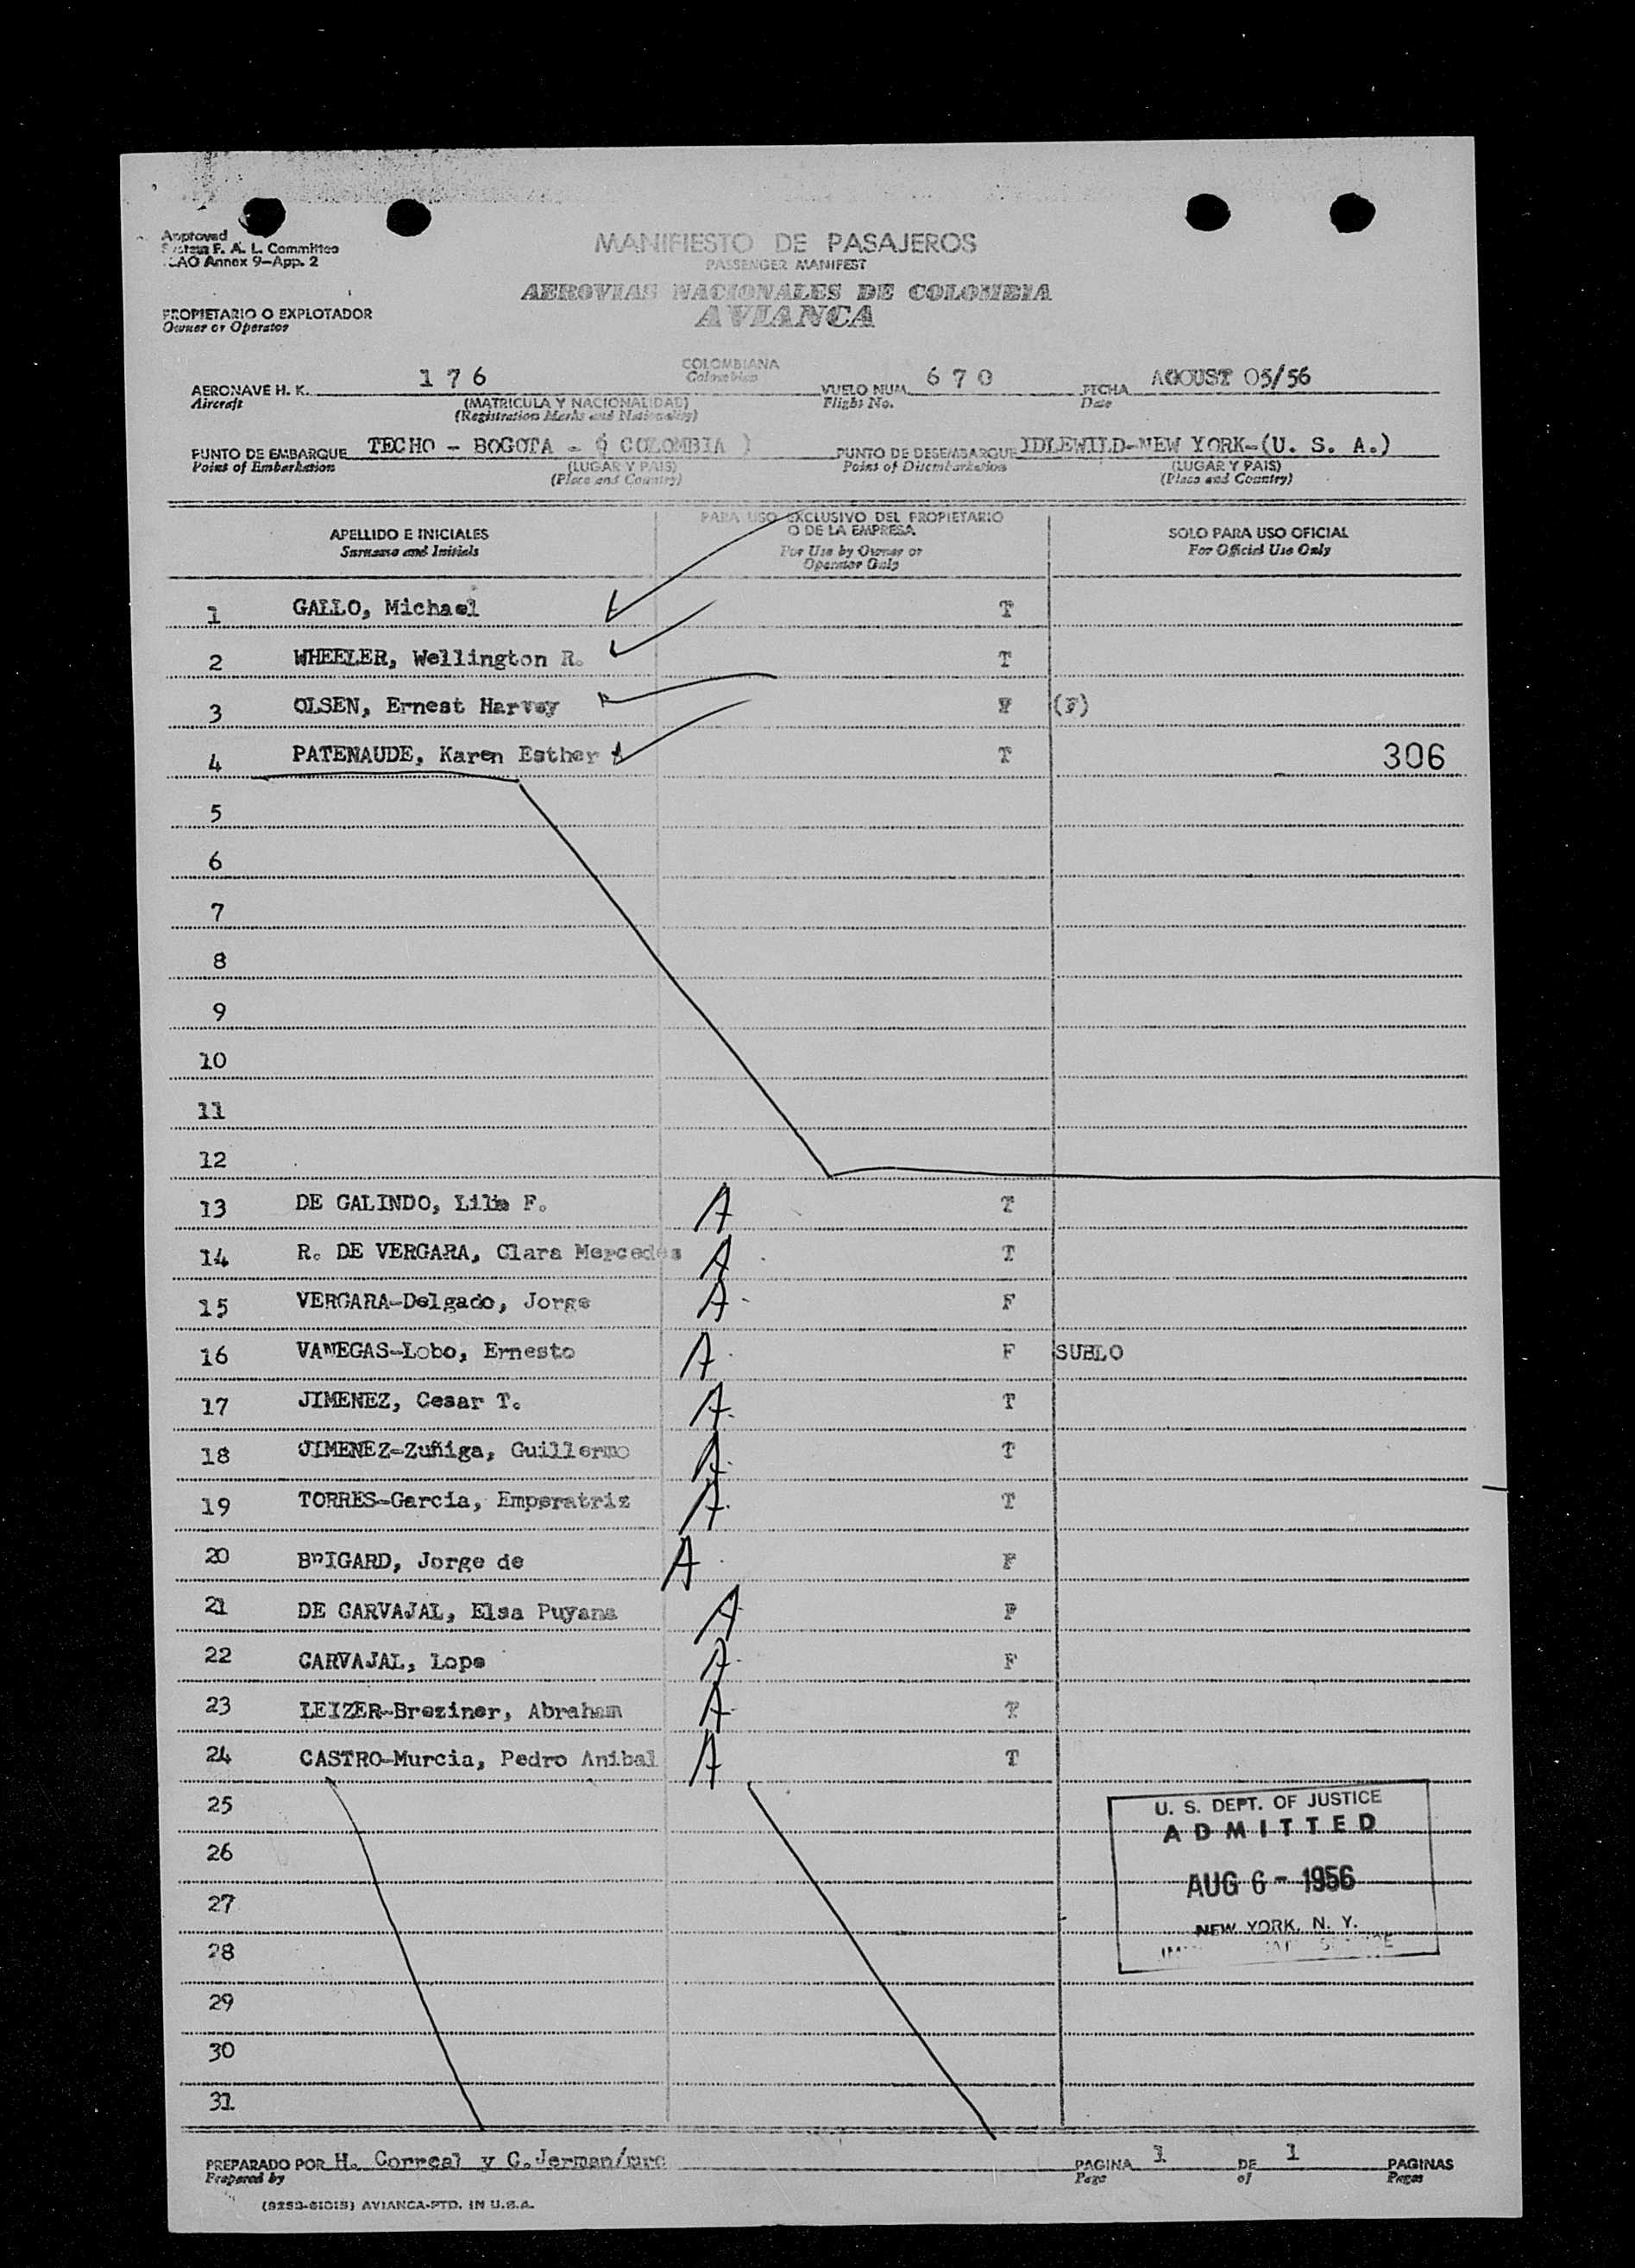 Approved
System F. A. L. Committee
ICAO Annex 9-App. 2
MANIFIESTO DE PASAJEROS
PASSENGER MANIFEST
AEROVIAS NACIONALES DE COLOMBIA
AVIANCA
PROPIETARIO O EXPLOTADOR
Owner or Operator
AERONAVE H. K. 176 COLOMBIANA VUELO NUM. 670 FECHA AGOUST 05/56
Aircraft (MATRICULA Y NACIONALIDAD) Colombian Flight No. Date
(Registration Marks and Nationality)
PUNTO DE EMBARQUE TECHO - BOGOTA - ( COLOMBIA ) PUNTO DE DESEMBARQUE IDLEWILD-NEW YORK-(U. S. A.)
Point of Embarkation (LUGAR Y PAIS) Point of Disembarkation (LUGAR Y PAIS)
(Place and Country) (Place and Country)
APELLIDO E INICIALES PARA USO EXCLUSIVO DEL PROPIETARIO O DE LA EMPRESA SOLO PARA USO OFICIAL
Surname and Initials For Use by Owner or Operator Only For Official Use Only
1 GALLO, Michael T
2 WHEELER, Wellington R. T
3 OLSEN, Ernest Harvey (F)
4 PATENAUDE, Karen Esther T 306
5
6
7
8
9
10
11
12
13 DE GALINDO, Lilia F. A T
14 R. DE VERGARA, Clara Mercedes A T
15 VERGARA-Delgado, Jorge A F
16 VANEGAS-Lobo, Ernesto A F SUELO
17 JIMENEZ, Cesar T. A T
18 JIMENEZ-Zuñiga, Guillermo A T
19 TORRES-Garcia, Emperatriz A T
20 BRIGARD, Jorge de A F
21 DE CARVAJAL, Elsa Puyana A F
22 CARVAJAL, Lope A F
23 LEIZER-Breziner, Abraham A
24 CASTRO-Murcia, Pedro Anibal A T
25
26
27
28
29
30
31
U. S. DEPT. OF JUSTICE
ADMITTED
AUG 6 - 1956
NEW YORK, N. Y.
PREPARADO POR H. Correal y C. Jerman/mrc PAGINA 1 DE 1 PAGINAS
Prepared by Page of Pages
(9253-61015) AVIANCA-PTD. IN U.S.A.